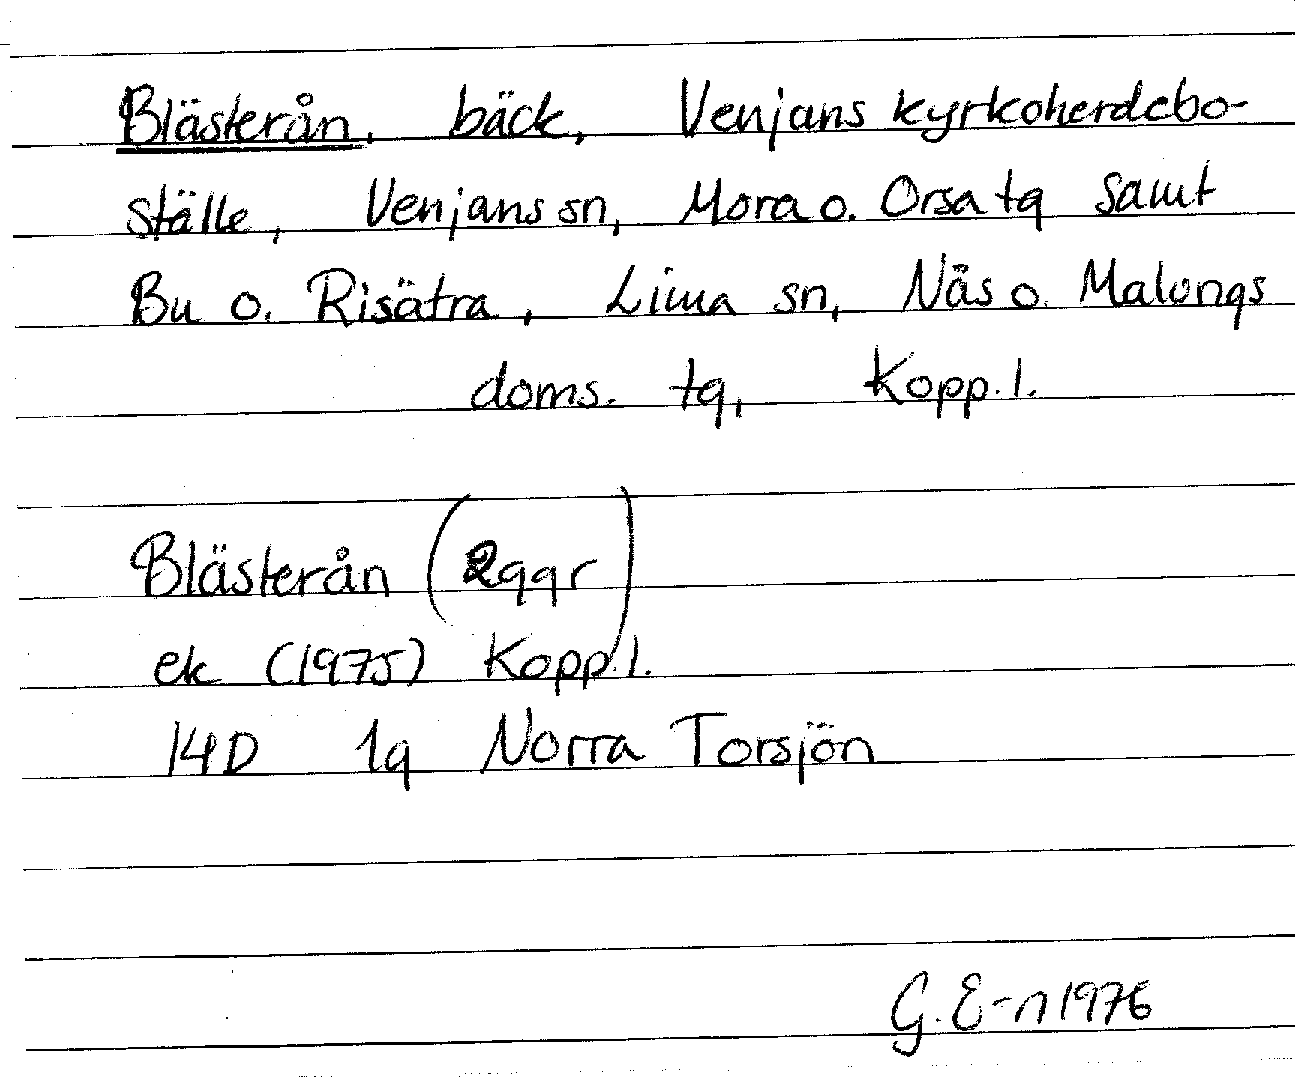 Blästerån, bäck, Venjans kyrkoherdebo-
ställe, Venjans sn, Mora o. Orsa tg samt
Bu o. Risätra, Lima sn, Nås o. Malungs
doms. tg, Kopp. l.
Blästerån (2ggr)
ek (1975) Kopp. l.
14D 1g Norra Torsjön
G. E-n 1976